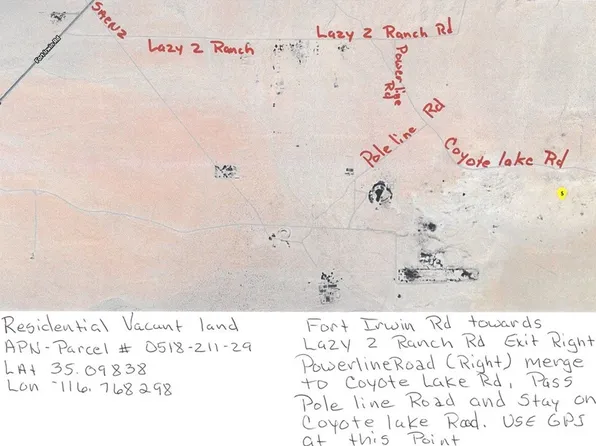 SAENZ
Fort Irwin Rd
Lazy 2 Ranch
Lazy 2 Ranch Rd
Powerline Rd
Pole line Rd
Coyote lake Rd
5
Residential Vacant land
APN-Parcel # 0518-211-29
LAt 35.09838
Lon -116.768298
Fort Irwin Rd towards
Lazy 2 Ranch Rd Exit Right
Powerline Road (Right) merge
to Coyote Lake Rd, Pass
Pole line Road and Stay on
Coyote lake Road. USE GPS
at this Point